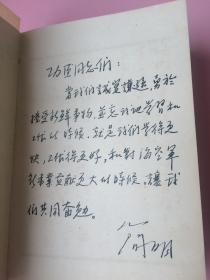 功臣同志们：
当我们诚实谦逊，勇於
接受新鲜事物，并忘我地学习和
工作的时候，就是我们学得更
快，工作得更好，和对海空军
事业贡献更大的时候，让我
们共同奋勉。